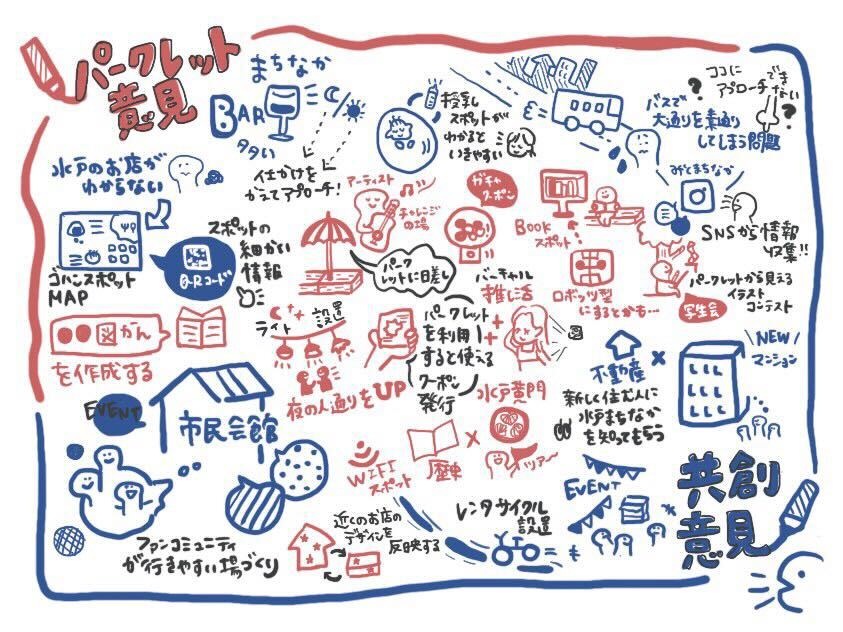 パークレット
意見
まちなか
BAR
タタい
仕かけを
かえてアプローチ!
授乳
スポットが
わかると
いきやすい
バスで
大通りを素通り
してしまう問題
ココに
アプローチできない
?
?
水戸のお店が
わからない
ゴハンスポット
MAP
QRコード
スポットの
細かい
情報
アーティスト
チャレンジ
の場
パーク
レットに日差し
ガチャ
クーポン
BOOK
スポット
みとまちなか
SNSから情報
収集!!
パークレットから見える
イラスト
コンテスト
写生会
図かん
を作成する
ライト
設置
夜の人通りをUP
パークレット
を利用
すると使える
クーポン
発行
バーチャル
推し活
ロボッツ型
にするとかも…
不動産
×
NEW
マンション
新しく住む人に
水戸まちなか
を知ってもらう
EVENT
市民会館
ファンコミュニティ
が行きやすい場づくり
WIFI
スポット
歴史
×
水戸黄門
ツアー
近くのお店の
デザインを
反映する
レンタサイクル
設置
EVENT
共創
意見